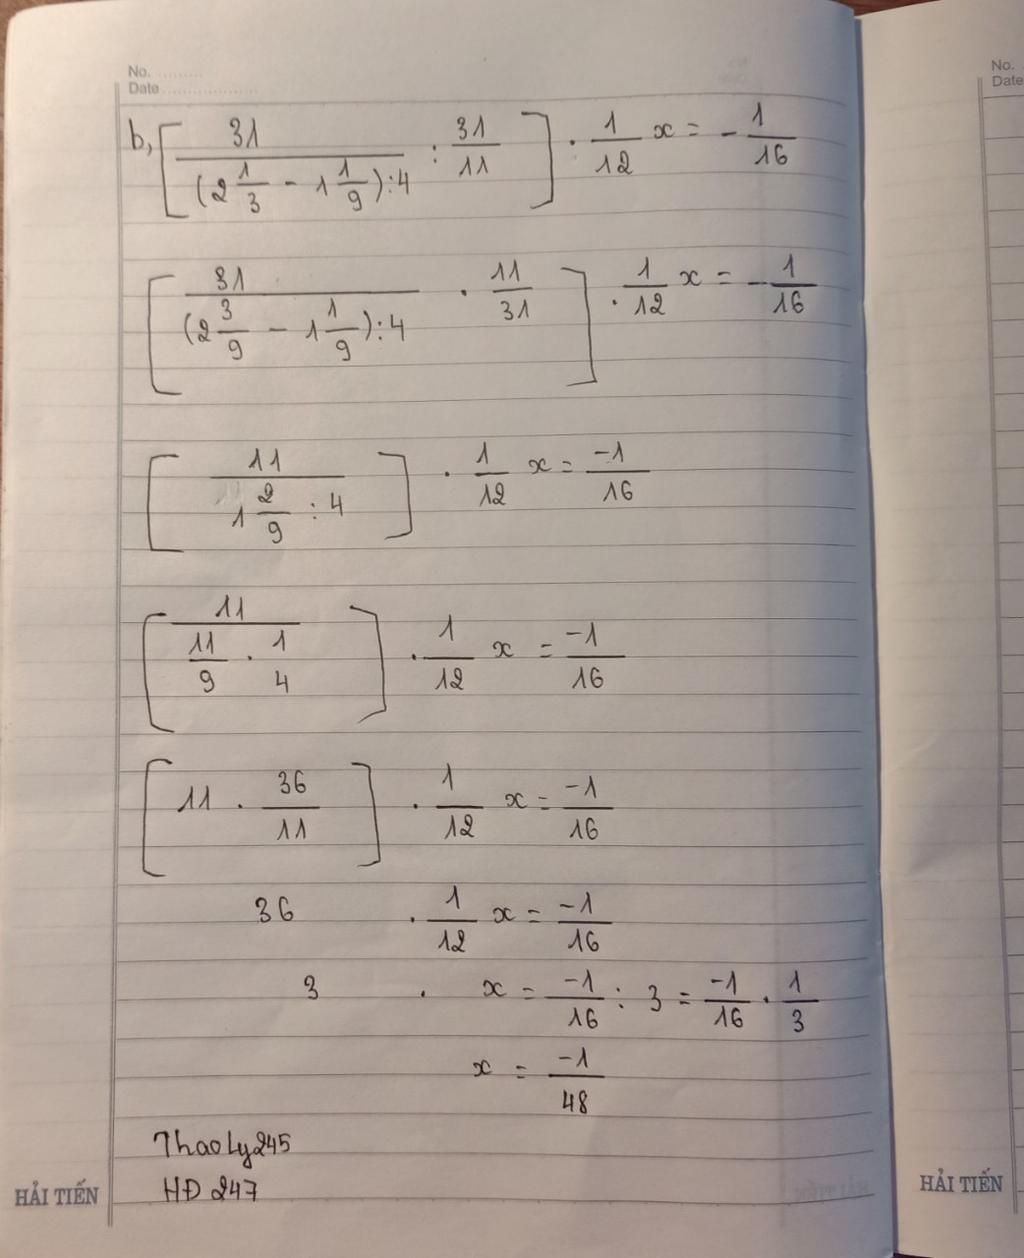 No. ..........
Date ....................
b, [ 31 / ((2 1/3 - 1 1/9) : 4) : 31/11 ] . 1/12 x = - 1/16
[ 31 / ((2 3/9 - 1 1/9) : 4) . 11/31 ] . 1/12 x = - 1/16
[ 11 / (1 2/9 : 4) ] . 1/12 x = -1/16
[ 11 / (11/9 . 1/4) ] . 1/12 x = -1/16
[ 11 . 36/11 ] . 1/12 x = -1/16
36 . 1/12 x = -1/16
3 . x = -1/16 : 3 = -1/16 . 1/3
x = -1/48
ThaoLy245
HĐ 247
HẢI TIẾN
No.
Date
HẢI TIẾN